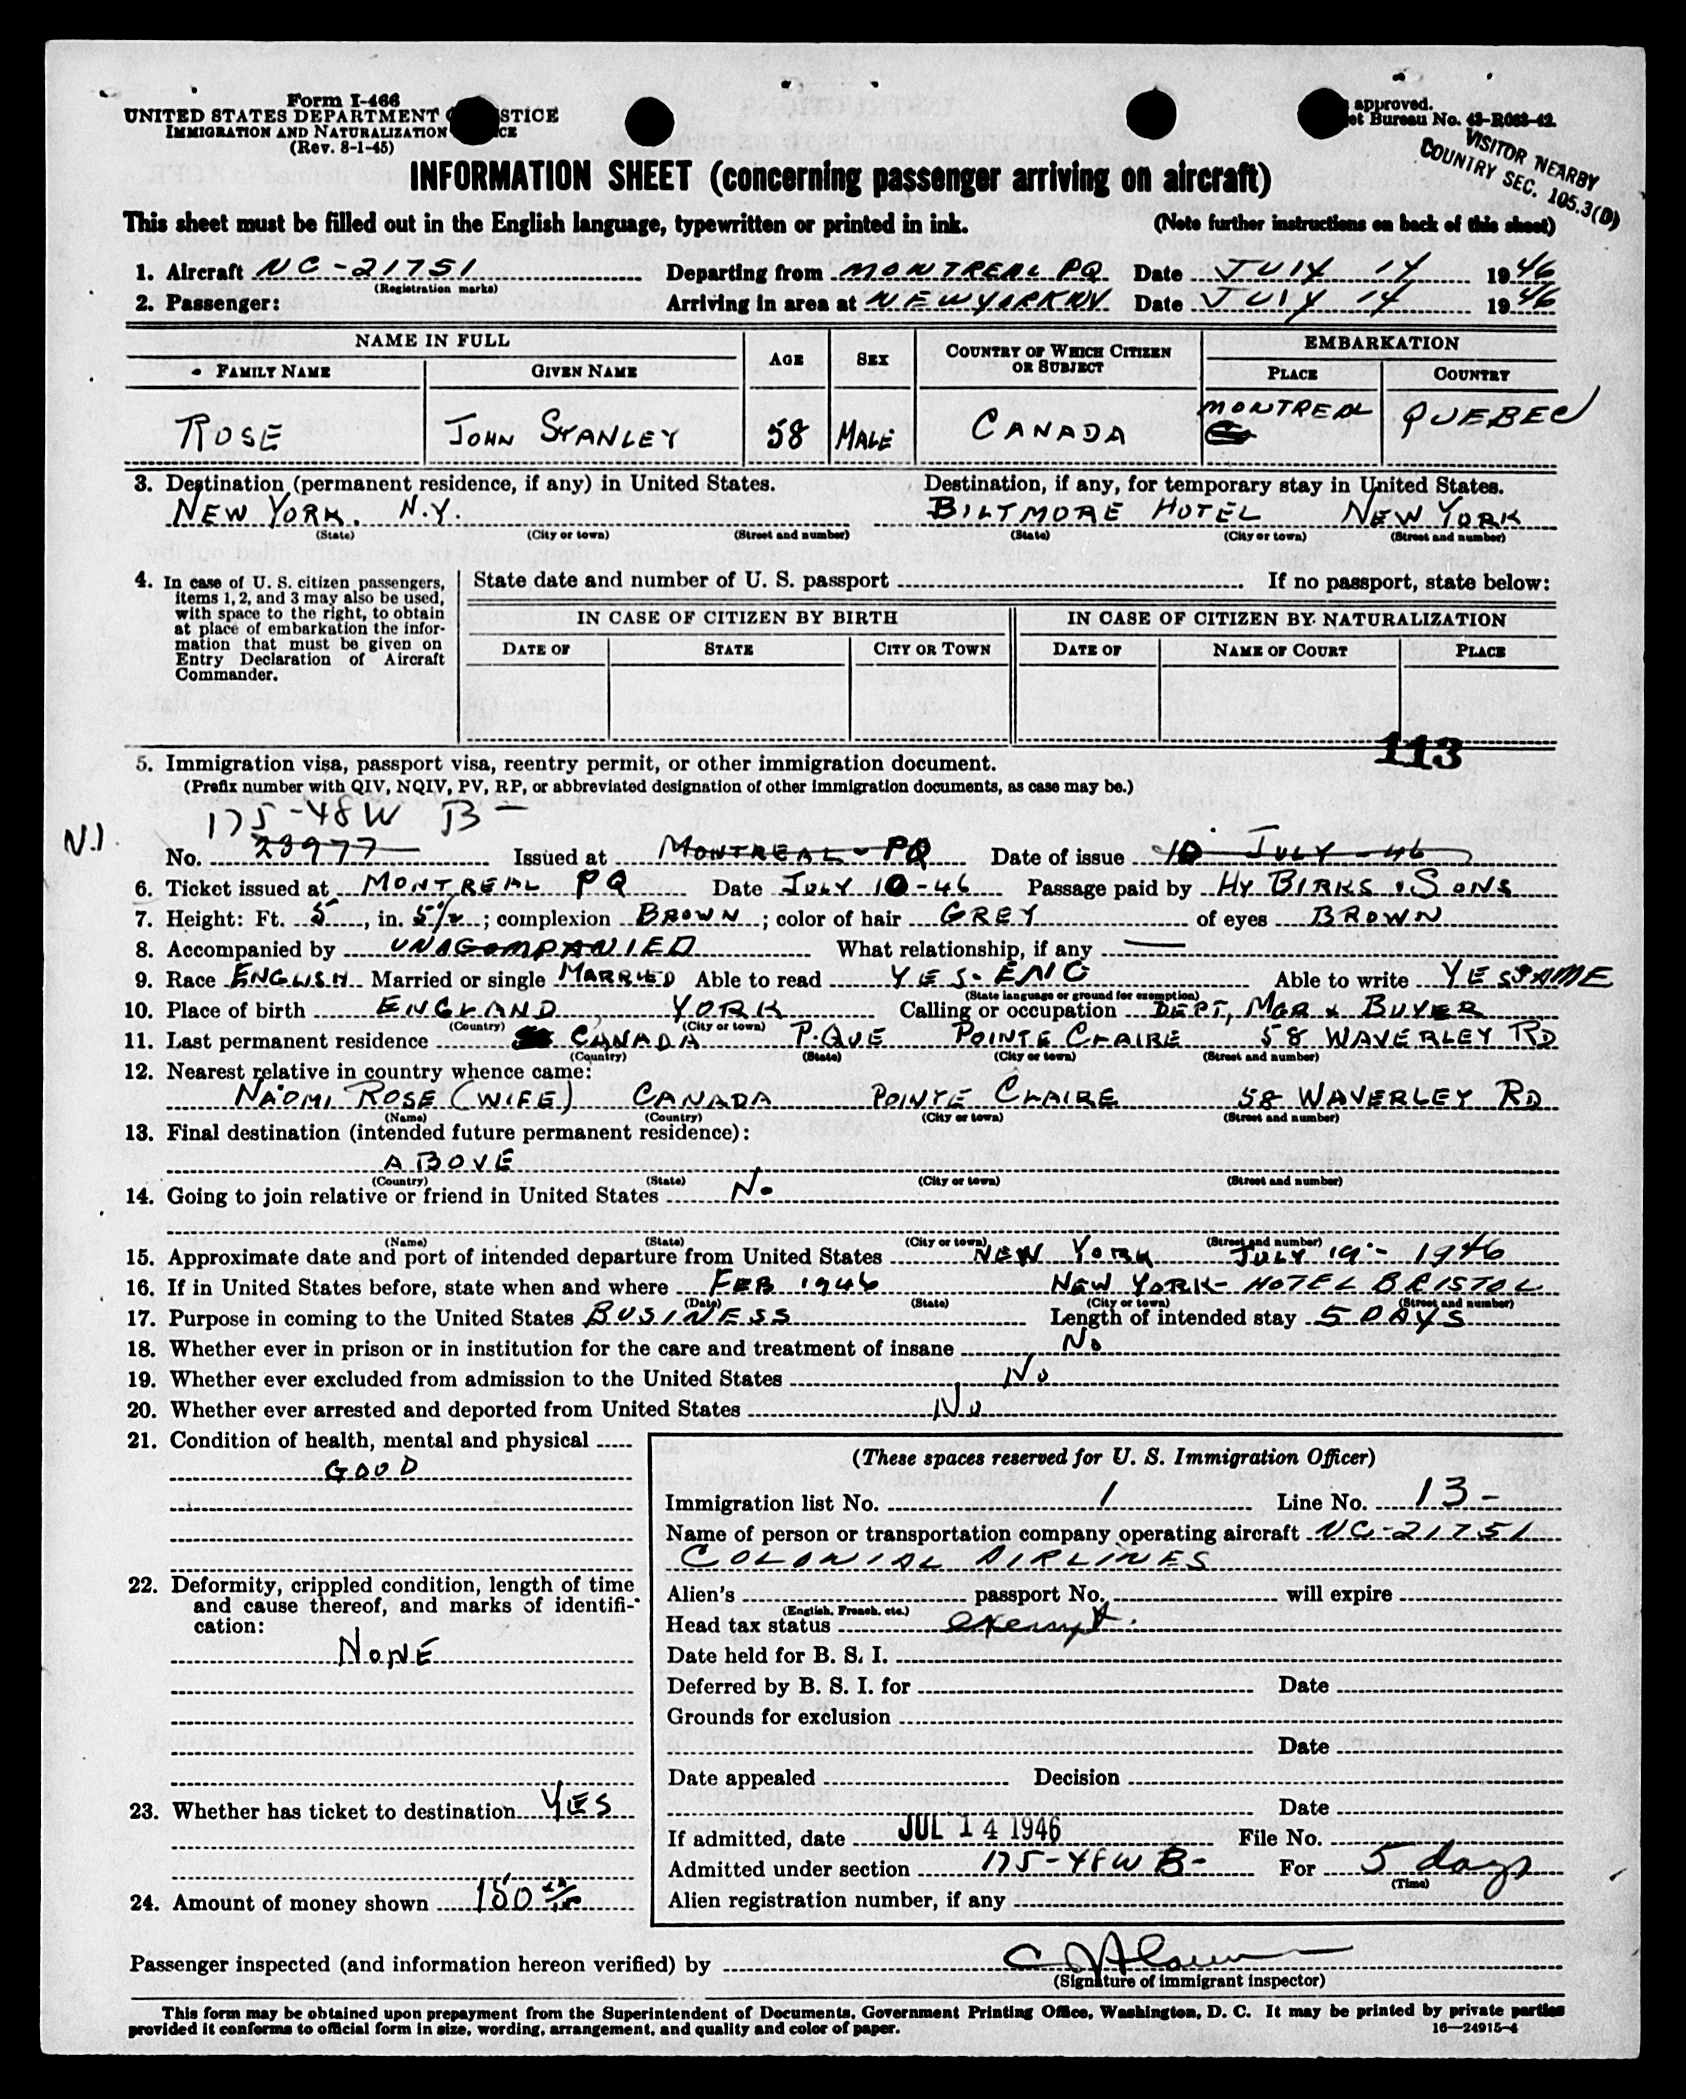 Form I-466
UNITED STATES DEPARTMENT STICE
IMMIGRATION AND NATURALIZATION CE
(Rev. 8-1-45)
approved.
et Bureau No. 43-R063-42
VISITOR NEARBY
COUNTRY SEC. 105.3(D)
INFORMATION SHEET (concerning passenger arriving on aircraft)
This sheet must be filled out in the English language, typewritten or printed in ink. (Note further instructions on back of this sheet)
1. Aircraft NC-21751 Departing from MONTREAL PQ Date JULY 14 1946
(Registration marks)
2. Passenger: Arriving in area at NEW YORK NY Date JULY 14 1946
NAME IN FULL AGE SEX COUNTRY OF WHICH CITIZEN OR SUBJECT EMBARKATION
FAMILY NAME GIVEN NAME PLACE COUNTRY
ROSE JOHN STANLEY 58 MALE CANADA MONTREAL QUEBEC
3. Destination (permanent residence, if any) in United States. Destination, if any, for temporary stay in United States.
NEW YORK. N.Y. BILTMORE HOTEL NEW YORK
(State) (City or town) (Street and number) (State) (City or town) (Street and number)
4. In case of U. S. citizen passengers, items 1, 2, and 3 may also be used, with space to the right, to obtain at place of embarkation the information that must be given on Entry Declaration of Aircraft Commander.
State date and number of U. S. passport If no passport, state below:
IN CASE OF CITIZEN BY BIRTH IN CASE OF CITIZEN BY NATURALIZATION
DATE OF STATE CITY OR TOWN DATE OF NAME OF COURT PLACE
113
5. Immigration visa, passport visa, reentry permit, or other immigration document.
(Prefix number with QIV, NQIV, PV, RP, or abbreviated designation of other immigration documents, as case may be.)
175-48W B-
N.I.
No. 23977 Issued at MONTREAL-PQ Date of issue 10 JULY-46
6. Ticket issued at MONTREAL PQ Date JULY 10-46 Passage paid by HY BIRKS & SONS
7. Height: Ft. 5, in. 5 1/2; complexion BROWN; color of hair GREY of eyes BROWN
8. Accompanied by UNACOMPANIED What relationship, if any —
9. Race ENGLISH Married or single MARRIED Able to read YES-ENG Able to write YES SAME
(State language or ground for exemption)
10. Place of birth ENGLAND, YORK Calling or occupation DEPT, MGR & BUYER
(Country) (City or town)
11. Last permanent residence CANADA P.QUE POINTE CLAIRE 58 WAVERLEY RD
(Country) (State) (City or town) (Street and number)
12. Nearest relative in country whence came:
NAOMI ROSE (WIFE) CANADA POINTE CLAIRE 58 WAVERLEY RD
(Name) (Country) (City or town) (Street and number)
13. Final destination (intended future permanent residence):
ABOVE
(Country) (State) (City or town) (Street and number)
14. Going to join relative or friend in United States No
(Name) (State) (City or town) (Street and number)
15. Approximate date and port of intended departure from United States NEW YORK JULY 19 - 1946
16. If in United States before, state when and where FEB 1946 NEW YORK - HOTEL BRISTOL
(Date) (State) (City or town) (Street and number)
17. Purpose in coming to the United States BUSINESS Length of intended stay 5 DAYS
18. Whether ever in prison or in institution for the care and treatment of insane No
19. Whether ever excluded from admission to the United States No
20. Whether ever arrested and deported from United States No
21. Condition of health, mental and physical
GOOD
22. Deformity, crippled condition, length of time
and cause thereof, and marks of identification:
NONE
23. Whether has ticket to destination YES
24. Amount of money shown 150
(These spaces reserved for U. S. Immigration Officer)
Immigration list No. 1 Line No. 13-
Name of person or transportation company operating aircraft NC-21751
COLONIAL AIRLINES
Alien's passport No. will expire
(English, French, etc.)
Head tax status exempt.
Date held for B. S. I.
Deferred by B. S. I. for Date
Grounds for exclusion
Date
Date appealed Decision
Date
If admitted, date JUL 14 1946 File No.
Admitted under section 175-48W B- For 5 days
(Time)
Alien registration number, if any
Passenger inspected (and information hereon verified) by
(Signature of immigrant inspector)
This form may be obtained upon prepayment from the Superintendent of Documents, Government Printing Office, Washington, D. C. It may be printed by private parties
provided it conforms to official form in size, wording, arrangement, and quality and color of paper. 16—24915-4